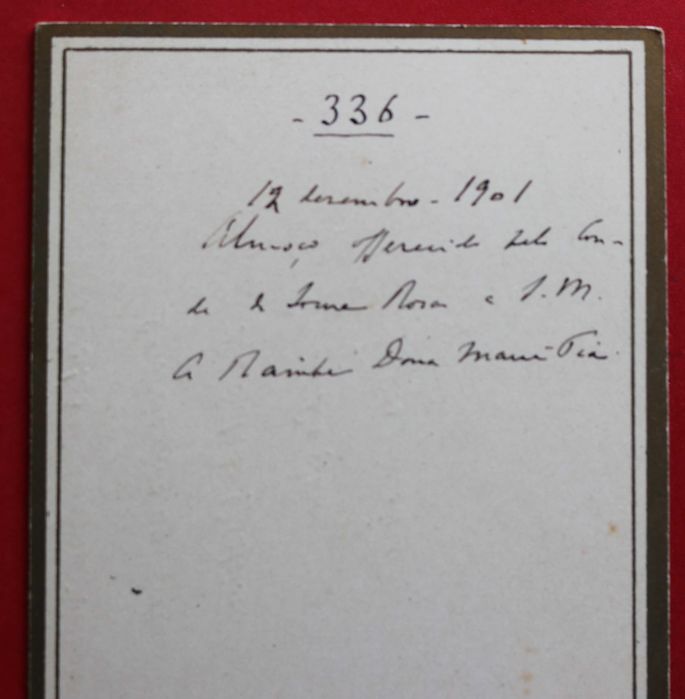 - 336 -
12 dezembro - 1901
Almoço offerecido pelo Con-
de de Sousa Rosa a S. M.
A Rainha Dona Maria Pia.